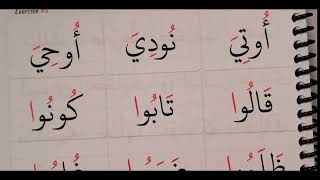 Exercise
أُوتِيَ نُودِيَ أُوحِيَ
قَالُوا تَابُوا كُونُوا